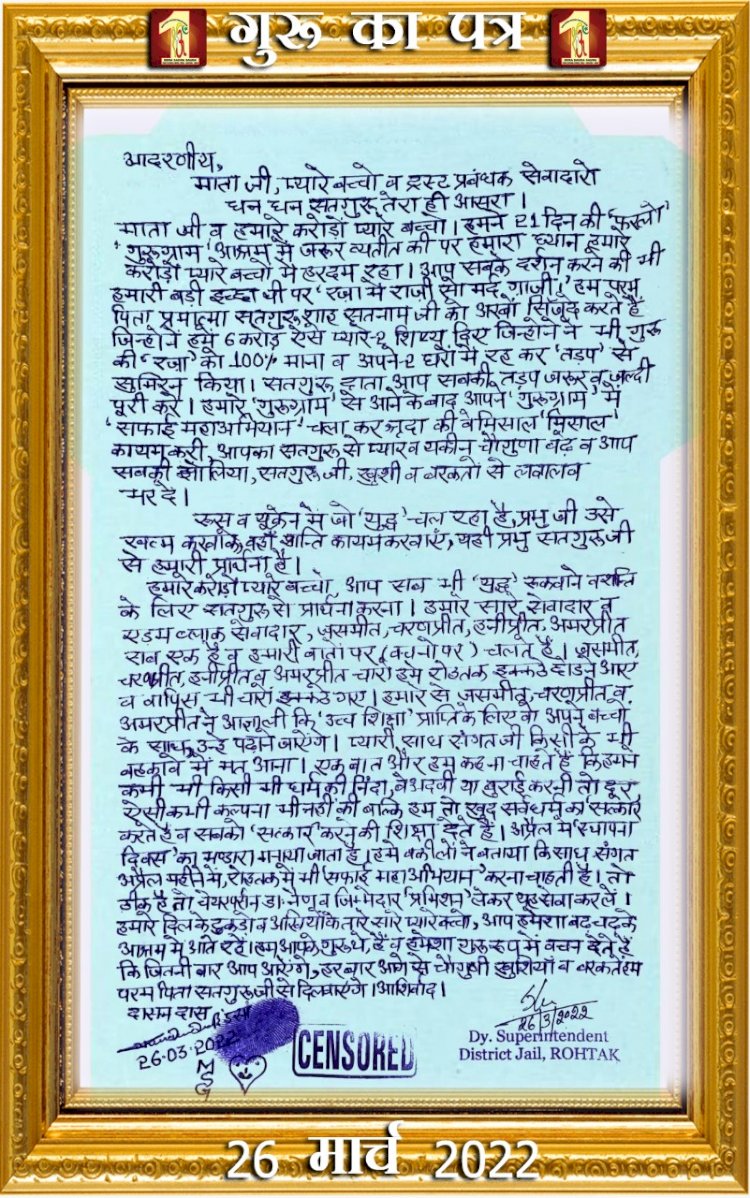 गुरू का पत्र
आदरणीय,
माता जी, प्यारे बच्चो व ट्रस्ट प्रबंधक सेवादारो
धन धन सतगुरू तेरा ही आसरा।
माता जी व हमारे करोड़ों प्यारे बच्चो। हमने 21 दिन की 'फरलो'
'गुरूग्राम' आश्रम में जरूर व्यतीत की पर हमारा ध्यान हमारे
करोड़ों प्यारे बच्चों में हरदम रहा। आप सबके दर्शन करने की भी
हमारी बड़ी इच्छा थी पर 'रजा में राजी सो मर्द गाजी।' हम परम
पिता प्रमात्मा सतगुरू शाह सतनाम जी को अरबों सिजदे करते हैं
जिन्होंने हमें 6 करोड़ ऐसे प्यारे-2 शिष्य दिए जिन्होंने ने भी गुरू
की 'रजा' को 100% माना व अपने-2 घरों में रह कर 'तड़प' से
सुमिरन किया। सतगुरू दाता आप सबकी तड़प जरूर व जल्दी
पूरी करें। हमारे 'गुरूग्राम' से आने के बाद आपने 'गुरूग्राम' में
'सफाई महाअभियान' चला कर श्रृद्धा की बेमिसाल 'मिसाल'
कायम करी, आपका सतगुरू से प्यार व यकीन चौगुणा बढ़े व आप
सबकी झोलिया, सतगुरू जी, खुशी व बरकतों से लबालब
भर दें।
रूस व यूक्रेन में जो 'युद्ध' चल रहा है, प्रभु जी उसे
खत्म करवाके वहाँ शान्ति कायम करवाएं, यही प्रभु सतगुरू जी
से हमारी प्रार्थना है।
हमारे करोड़ों प्यारे बच्चो, आप सब भी 'युद्ध' रूकवाने व शान्ति
के लिए सतगुरू से प्रार्थना करना। हमारे सारे सेवादार व
एडम ब्लाक सेवादार, जसमीत, चरणप्रीत, हनीप्रीत, अमरप्रीत
सब एक हैं व हमारी बातों पर (वचनों पर) चलते हैं। जसमीत,
चरणप्रीत, हनीप्रीत व अमरप्रीत चारों हमें रोहतक इक्कठे छोडने आए
व वापिस भी चारों इक्कठे गए। हमारे से जसमीत, चरणप्रीत व
अमरप्रीत ने आज्ञा ली कि 'उच्च शिक्षा' प्राप्ति के लिए वो अपने बच्चों
के साथ उन्हें पढ़ाने जाएंगे। प्यारी साध संगत जी किसी के भी
बहकावे में मत आना। एक बात और हम कहना चाहते हैं कि हमने
कभी भी किसी भी धर्म की निंदा, बेअदबी या बुराई करनी तो दूर
ऐसी कभी कल्पना भी नहीं की बल्कि हम तो खुद सर्व धर्म का सत्कार
करते हैं व सबको 'सत्कार' करने की शिक्षा देते हैं। अप्रैल में 'स्थापना
दिवस' का भण्डारा मनाया जाता है। हमें वकीलों ने बताया कि साध संगत
अप्रैल महीने में, रोहतक में भी 'सफाई महाअभियान' करना चाहती है। तो
ठीक है तो चेयरपर्सन डा. नैणू व जिम्मेदार 'प्रमिशन' लेकर यह सेवा कर लें।
हमारे दिल के टुकड़ो व अखियों के तारे सारे प्यारे बच्चो, आप हमेशा बढ़ चढ़ के
आश्रम में आते रहें। हम आपके गुरू थे, हैं व हमेशा गुरू रूप में वचन देते हैं
कि जितनी बार आप आएंगे, हर बार आगे से चौगुणी खुशियाँ व बरकतें हम
परम पिता सतगुरू जी से दिलवाएंगे। आशिर्वाद।
दासन दास
26.03.2022
MSG
CENSORED
26/3/2022
Dy. Superintendent
District Jail, ROHTAK
26 मार्च 2022